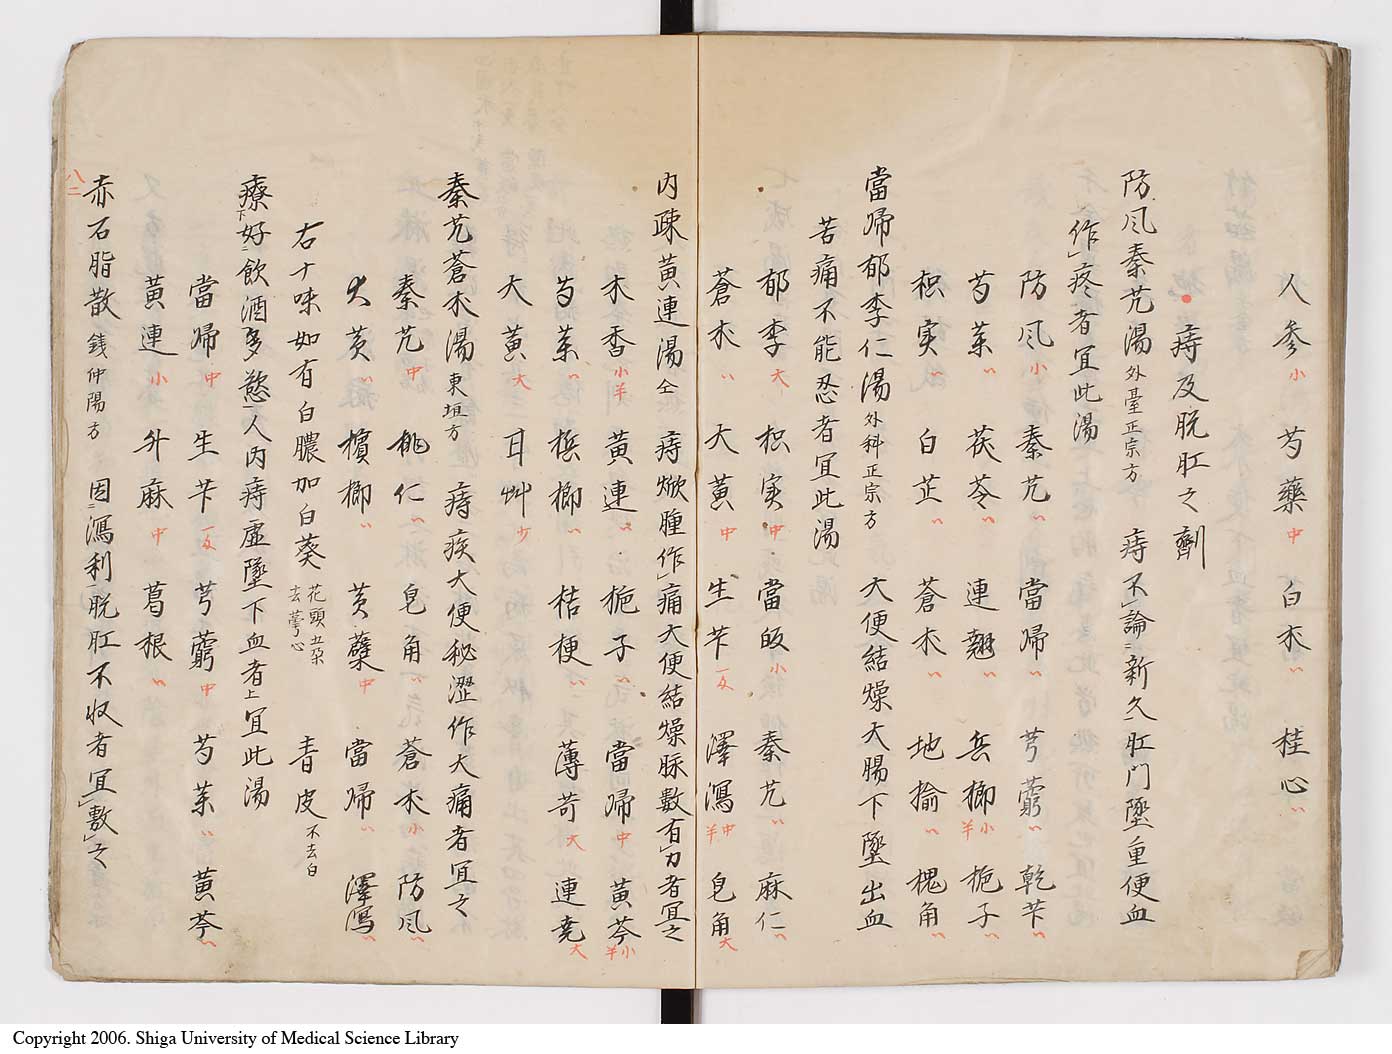 人参小 芍藥中 白朮〃 桂心〃
痔及脱肛之劑
防风秦艽湯外臺正宗方 痔不論新久肛門墜重便血
作疼者宜此湯
防风小 秦艽〃 當帰〃 芎藭〃 乾芐〃
芍茱〃 茯苓〃 連翹〃 兵榔小半 栀子〃
枳実〃 白芷〃 蒼朮〃 地揄〃 槐角〃
當帰郁李仁湯外科正宗方 大便結燥大腸下墜出血
苦痛不能忍者宜此湯
郁李大 枳実中 當皈小 秦艽〃 麻仁〃
蒼朮〃 大黄中 生芐一叐 澤瀉中半 皂角大
内疎黄連湯仝 痔焮腫作痛大便結燥脉数有力者宜之
木香小半 黄連〃 栀子〃 當帰中 黄芩小半
芍茱〃 梹榔〃 桔梗〃 薄苛大 連尭大
大黄大 甘艸少
秦艽蒼朮湯東垣方 痔疾大便秘澀作大痛者宜之
秦艽中 桃仁〃 皂角〃 蒼朮小 防风〃
大黄〃 檳榔〃 黄蘗中 當帰〃 澤瀉〃
右十味如有白膿加白葵花頭五朶去萼心 青皮不去白
療下好飲酒多慾人内痔虚墜下血者上宜此湯
當帰中 生芐一叐 芎藭中 芍茱〃 黄芩〃
黄連小 外麻中 葛根〃
赤石脂散銭仲陽方 因瀉利脱肛不収者宜敷之
八二
Copyright 2006. Shiga University of Medical Science Library